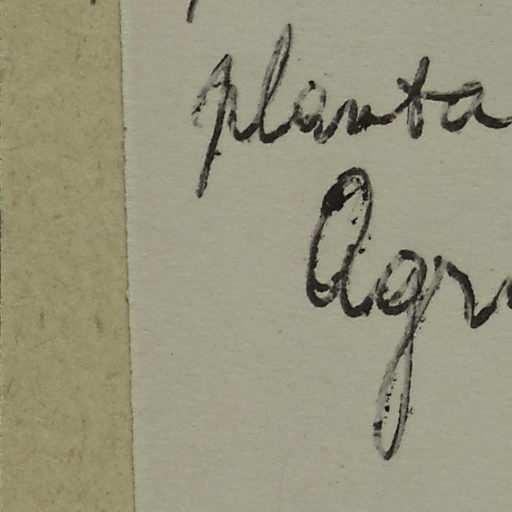 planta
Agr